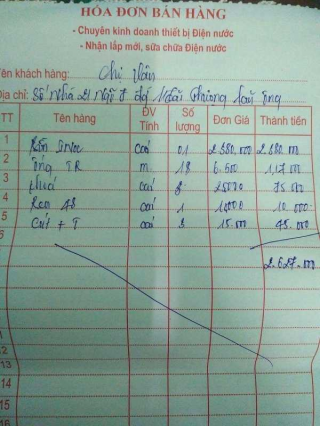 HÓA ĐƠN BÁN HÀNG
- Chuyên kinh doanh thiết bị Điện nước
- Nhận lắp mới, sửa chữa Điện nước
Tên khách hàng: Chị Vân
Địa chỉ: Số nhà 21 ngõ
TT Tên hàng ĐV Tính Số lượng Đơn Giá Thành tiền
1 inox cái 01 2.380.000 2.380.000
2 ống TR m 18 6.500 117.000
3 cái 75.000
4 Ren cái 1 10000 10.000
5 Cút + T cái 3 15.000 45.000
2.627.000
12
13
14
15
16